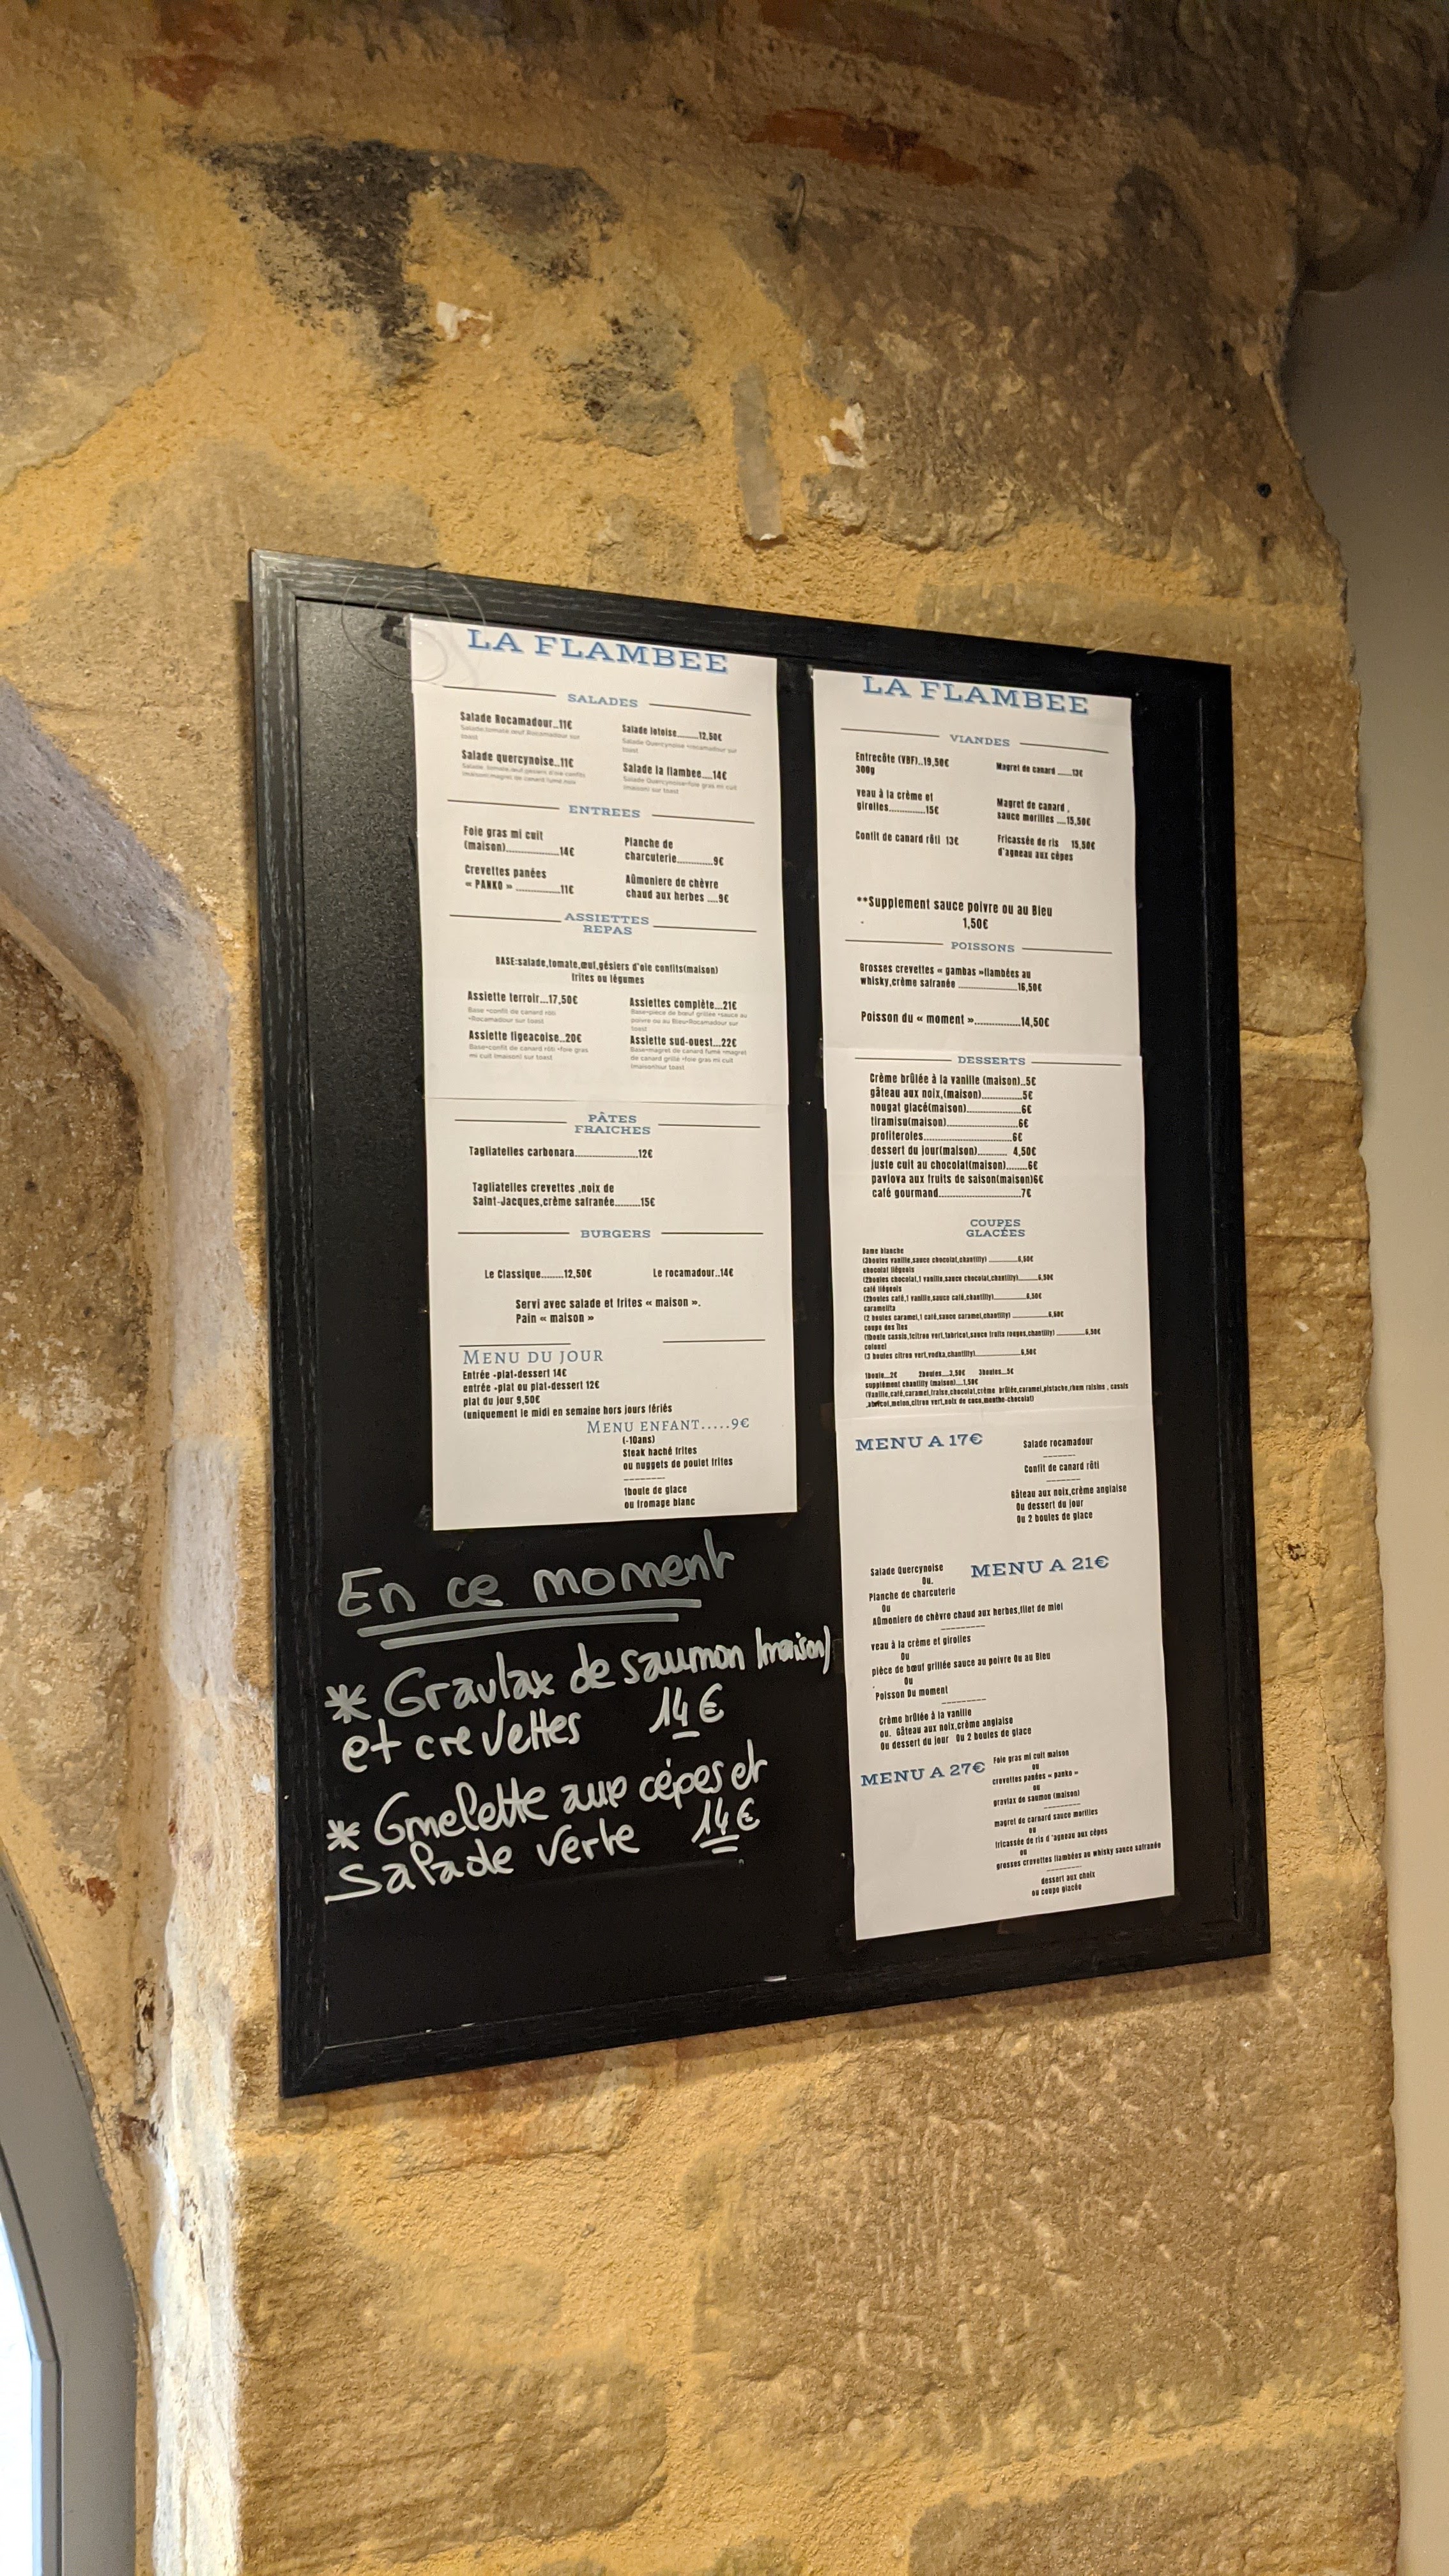 LA FLAMBEE
SALADES
Salade Rocamadour..11€
Salade,tomate,œuf,Rocamadour sur
toast
Salade lotoise.........12,50€
Salade Quercynoise +rocamadour sur
toast
Salade quercynoise..11€
Salade, tomate,œuf,gésiers d'oie confits
(maison)magret de canard fumé,noix
Salade la flambee....14€
Salade Quercynoise+foie gras mi cuit
(maison) sur toast
ENTREES
Foie gras mi cuit
(maison)...................14€
Planche de
charcuterie.............9€
Crevettes panées
« PANKO » ................11€
Aûmoniere de chèvre
chaud aux herbes ....9€
ASSIETTES
REPAS
BASE:salade,tomate,œuf,gésiers d'oie confits(maison)
frites ou légumes
Assiette terroir...17,50€
Base +confit de canard rôti
+Rocamadour sur toast
Assiettes complète...21€
Base+piece de bœuf grillée +sauce au
poivre ou au Bleu+Rocamadour sur
toast
Assiette figeacoise..20€
Base+confit de canard rôti +foie gras
mi cuit (maison) sur toast
Assiette sud-ouest...22€
Base+magret de canard fumé +magret
de canard grillé +foie gras mi cuit
(maison)sur toast
PÂTES
FRAICHES
Tagliatelles carbonara......................12€
Tagliatelles crevettes ,noix de
Saint-Jacques,crème safranée.........15€
BURGERS
Le Classique........12,50€
Le rocamadour..14€
Servi avec salade et frites « maison ».
Pain « maison »
MENU DU JOUR
Entrée -plat-dessert 14€
entrée -plat ou plat-dessert 12€
plat du jour 9,50€
(uniquement le midi en semaine hors jours fériés
MENU ENFANT.....9€
(-10ans)
Steak haché frites
ou nuggets de poulet frites
--------
1boule de glace
ou fromage blanc
En ce moment
* Gravlax de saumon (maison)
et crevettes 14€
* Omelette aux cépes et
Salade verte 14€
LA FLAMBEE
VIANDES
Entrecôte (VBF)..19,50€
300g
Magret de canard ......13€
veau à la crème et
girolles.............15€
Magret de canard ,
sauce morilles ....15,50€
Confit de canard rôti 13€
Fricassée de ris 15,50€
d'agneau aux cèpes
**Supplement sauce poivre ou au Bleu
1,50€
POISSONS
Grosses crevettes « gambas »flambées au
whisky,crème safranée .....................16,50€
Poisson du « moment »................14,50€
DESSERTS
Crème brûlée à la vanille (maison)..5€
gâteau aux noix,(maison)..............5€
nougat glacé(maison)...................6€
tiramisu(maison)........................6€
profiteroles..............................6€
dessert du jour(maison).......... 4,50€
juste cuit au chocolat(maison).......6€
pavlova aux fruits de saison(maison)6€
café gourmand............................7€
COUPES
GLACÉES
Dame blanche
(3boules vanille,sauce chocolat,chantilly) .............6,50€
chocolat liégeois
(2boules chocolat,1 vanille,sauce chocolat,chantilly).........6,50€
café liégeois
(2boules café,1 vanille,sauce café,chantilly)...............6,50€
caramelita
(2 boules caramel,1 café,sauce caramel,chantilly) ................6,50€
coupe des îles
(1boule cassis,1citron vert,1abricot,sauce fruits rouges,chantilly) .............6,50€
colonel
(3 boules citron vert,vodka,chantilly).....................6,50€
1boule...2€ 2boules....3,50€ 3boules...5€
supplément chantilly (maison)....1,50€
(Vanille,café,caramel,fraise,chocolat,crème brûlée,caramel,pistache,rhum raisins , cassis
,abricot,melon,citron vert,noix de coco,menthe-chocolat)
MENU A 17€
Salade rocamadour
--------
Confit de canard rôti
--------
Gâteau aux noix,crème anglaise
Ou dessert du jour
Ou 2 boules de glace
MENU A 21€
Salade Quercynoise
Ou.
Planche de charcuterie
Ou
Aûmoniere de chèvre chaud aux herbes,filet de miel
----------
veau à la crème et girolles
Ou
pièce de bœuf grillée sauce au poivre Ou au Bleu
Ou
Poisson Du moment
----------
Crème brûlée à la vanille
ou. Gâteau aux noix,crème anglaise
Ou dessert du jour Ou 2 boules de glace
MENU A 27€
Foie gras mi cuit maison
ou
crevettes panées « panko »
ou
gravlax de saumon (maison)
----------
magret de carnard sauce morilles
ou
fricassée de ris d 'agneau aux cèpes
ou
grosses crevettes flambées au whisky sauce safranée
----------
dessert aux choix
ou coupe glacée